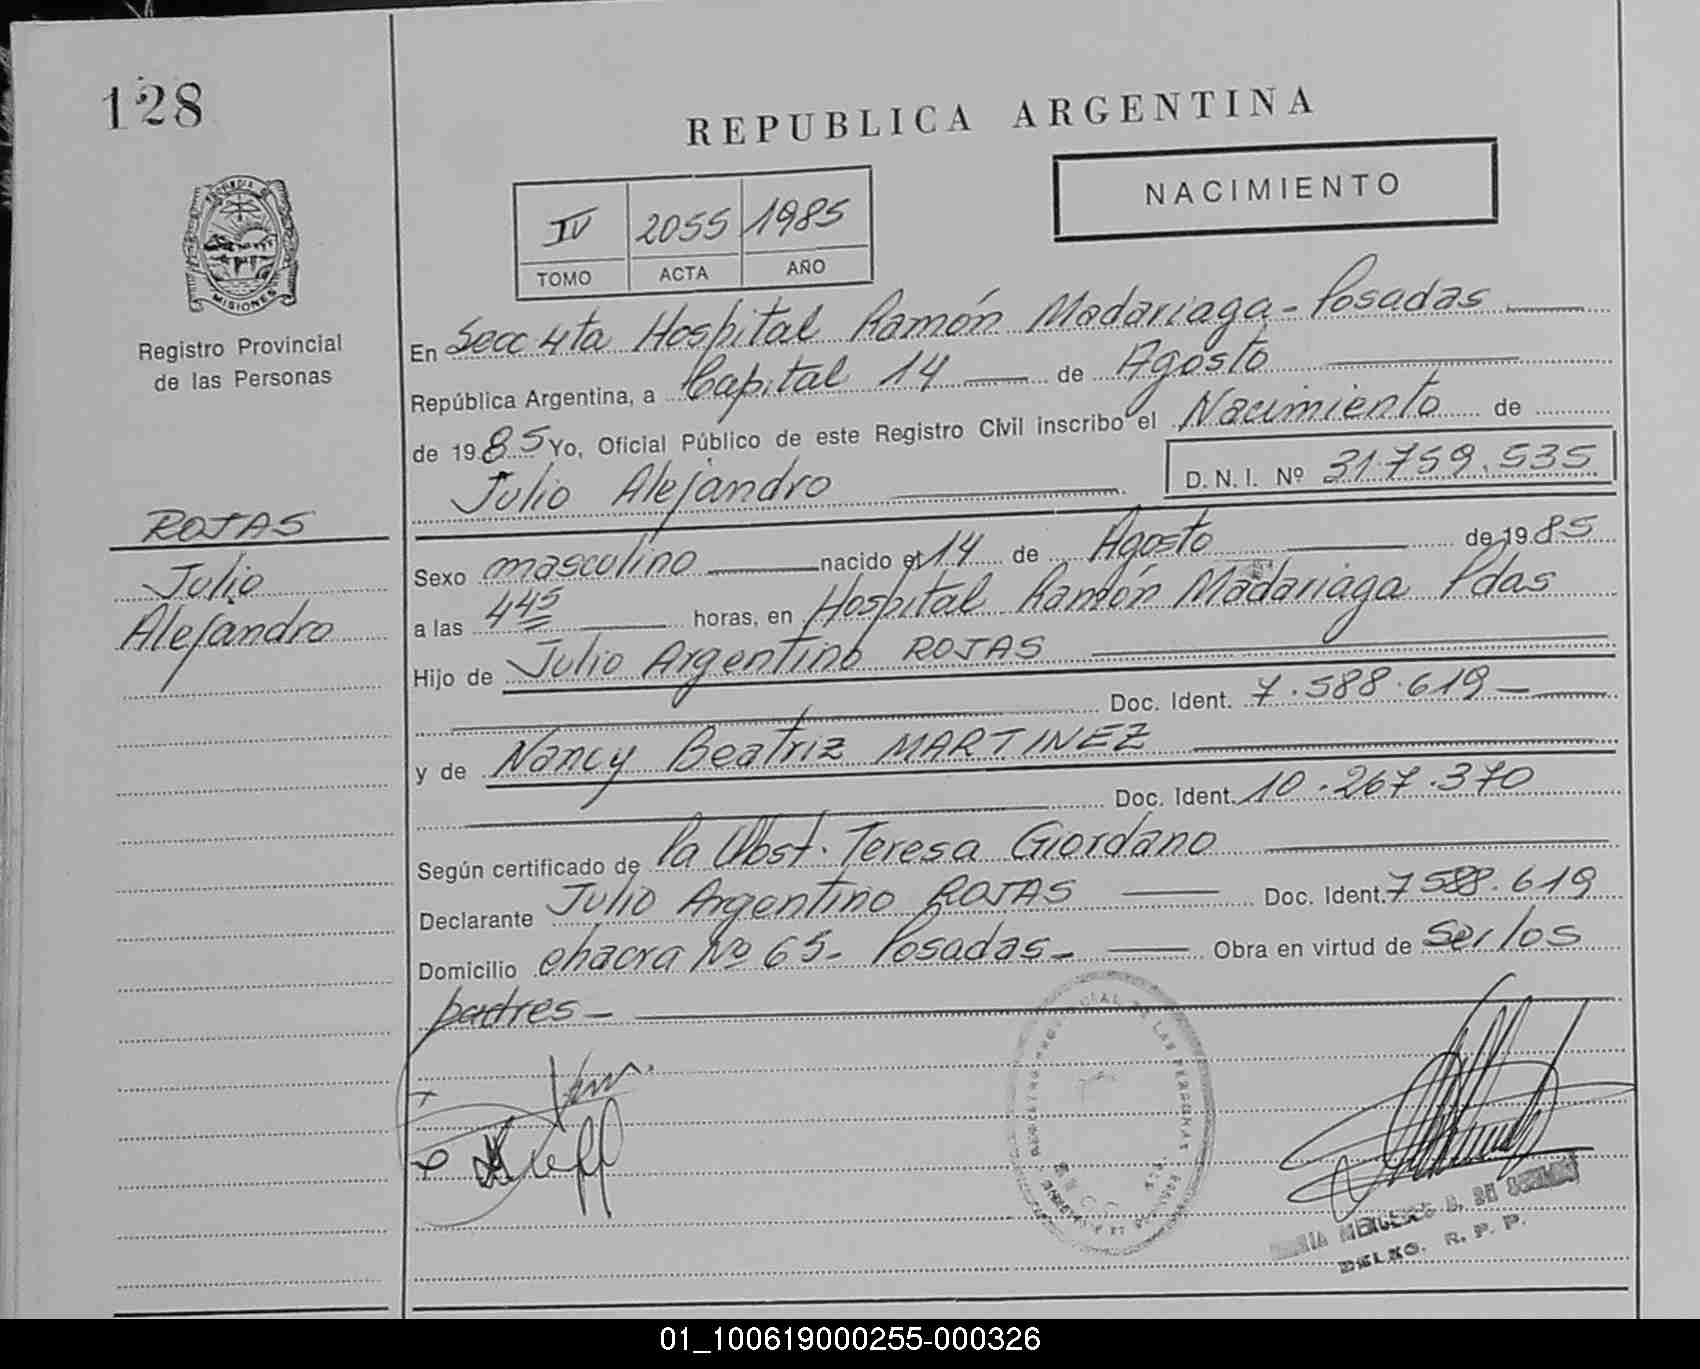 128
REPUBLICA ARGENTINA
NACIMIENTO
IV 2055 1985
TOMO ACTA AÑO
MISIONES
Registro Provincial
de las Personas
En Secc 4ta Hospital Ramón Madariaga - Posadas
República Argentina, a Capital 14 de Agosto
de 1985 Yo, Oficial Público de este Registro Civil inscribo el Nacimiento de
Julio Alejandro D.N.I. Nº 31.759.535
ROJAS
Julio
Alejandro
Sexo masculino nacido el 14 de Agosto de 1985
a las 4 45 horas, en Hospital Ramón Madariaga Pdas
Hijo de Julio Argentino ROJAS
Doc. Ident. 7.588.619
y de Nancy Beatriz MARTINEZ
Doc. Ident. 10.267.370
Según certificado de la Obst. Teresa Giordano
Declarante Julio Argentino ROJAS Doc. Ident. 7588.619
Domicilio chacra Nº 65- Posadas- Obra en virtud de ser los
padres-
DE LAS PERSONAS
R. P. P.
01_100619000255-000326